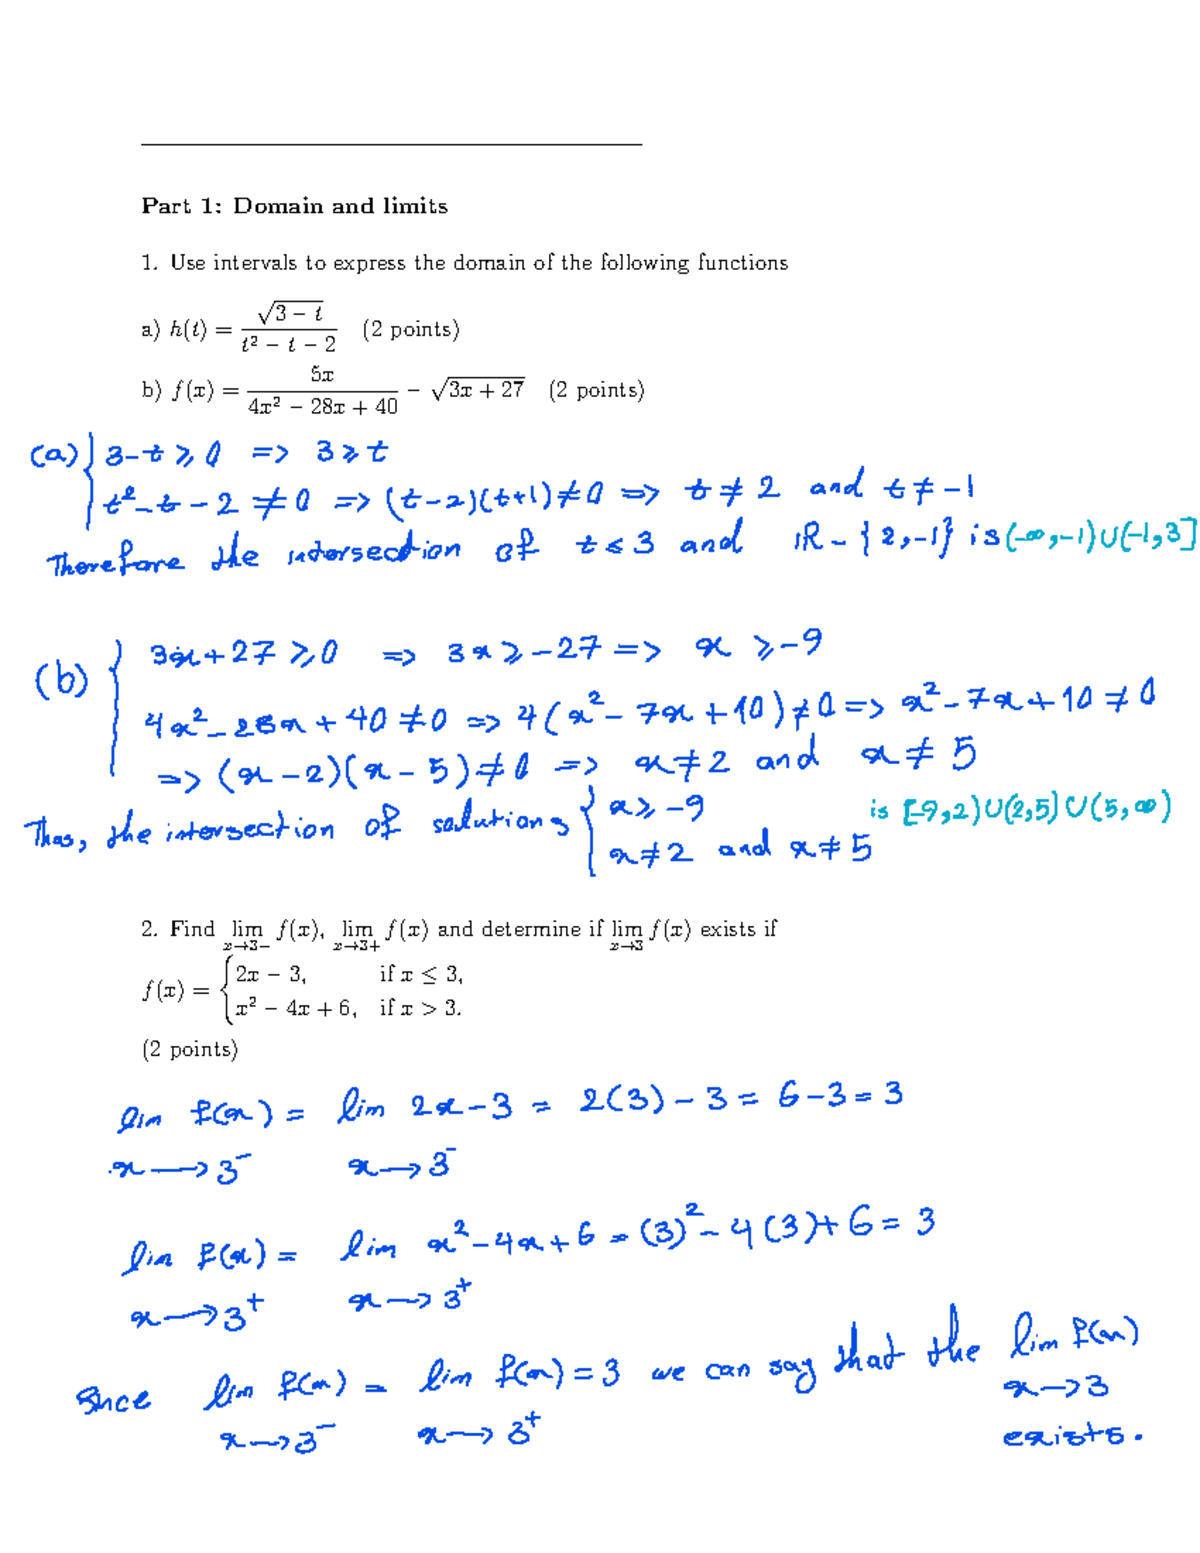 Part 1: Domain and limits
1. Use intervals to express the domain of the following functions
a) h(t) = √(3 − t) / (t² − t − 2) (2 points)
b) f(x) = 5x / (4x² − 28x + 40) − √(3x + 27) (2 points)
(a) { 3-t ≥ 0 => 3 ≥ t
t²-t-2 ≠ 0 => (t-2)(t+1) ≠ 0 => t ≠ 2 and t ≠ -1
Therefore the intersection of t ≤ 3 and IR - {2,-1} is (-∞,-1)∪(-1,3]
(b) { 3x+27 ≥ 0 => 3x ≥ -27 => x ≥ -9
4x²-28x+40 ≠ 0 => 4(x²-7x+10) ≠ 0 => x²-7x+10 ≠ 0
=> (x-2)(x-5) ≠ 0 => x ≠ 2 and x ≠ 5
Thus, the intersection of solutions { x ≥ -9 is [-9,2)∪(2,5)∪(5,∞)
x ≠ 2 and x ≠ 5
2. Find lim x→3− f(x), lim x→3+ f(x) and determine if lim x→3 f(x) exists if
f(x) = { 2x − 3, if x ≤ 3,
x² − 4x + 6, if x > 3.
(2 points)
lim f(x) = lim 2x-3 = 2(3)-3 = 6-3 = 3
x→3⁻ x→3⁻
lim f(x) = lim x²-4x+6 = (3)²-4(3)+6 = 3
x→3⁺ x→3⁺
Since lim f(x) = lim f(x) = 3 we can say that the lim f(x)
x→3⁻ x→3⁺ x→3
exists.